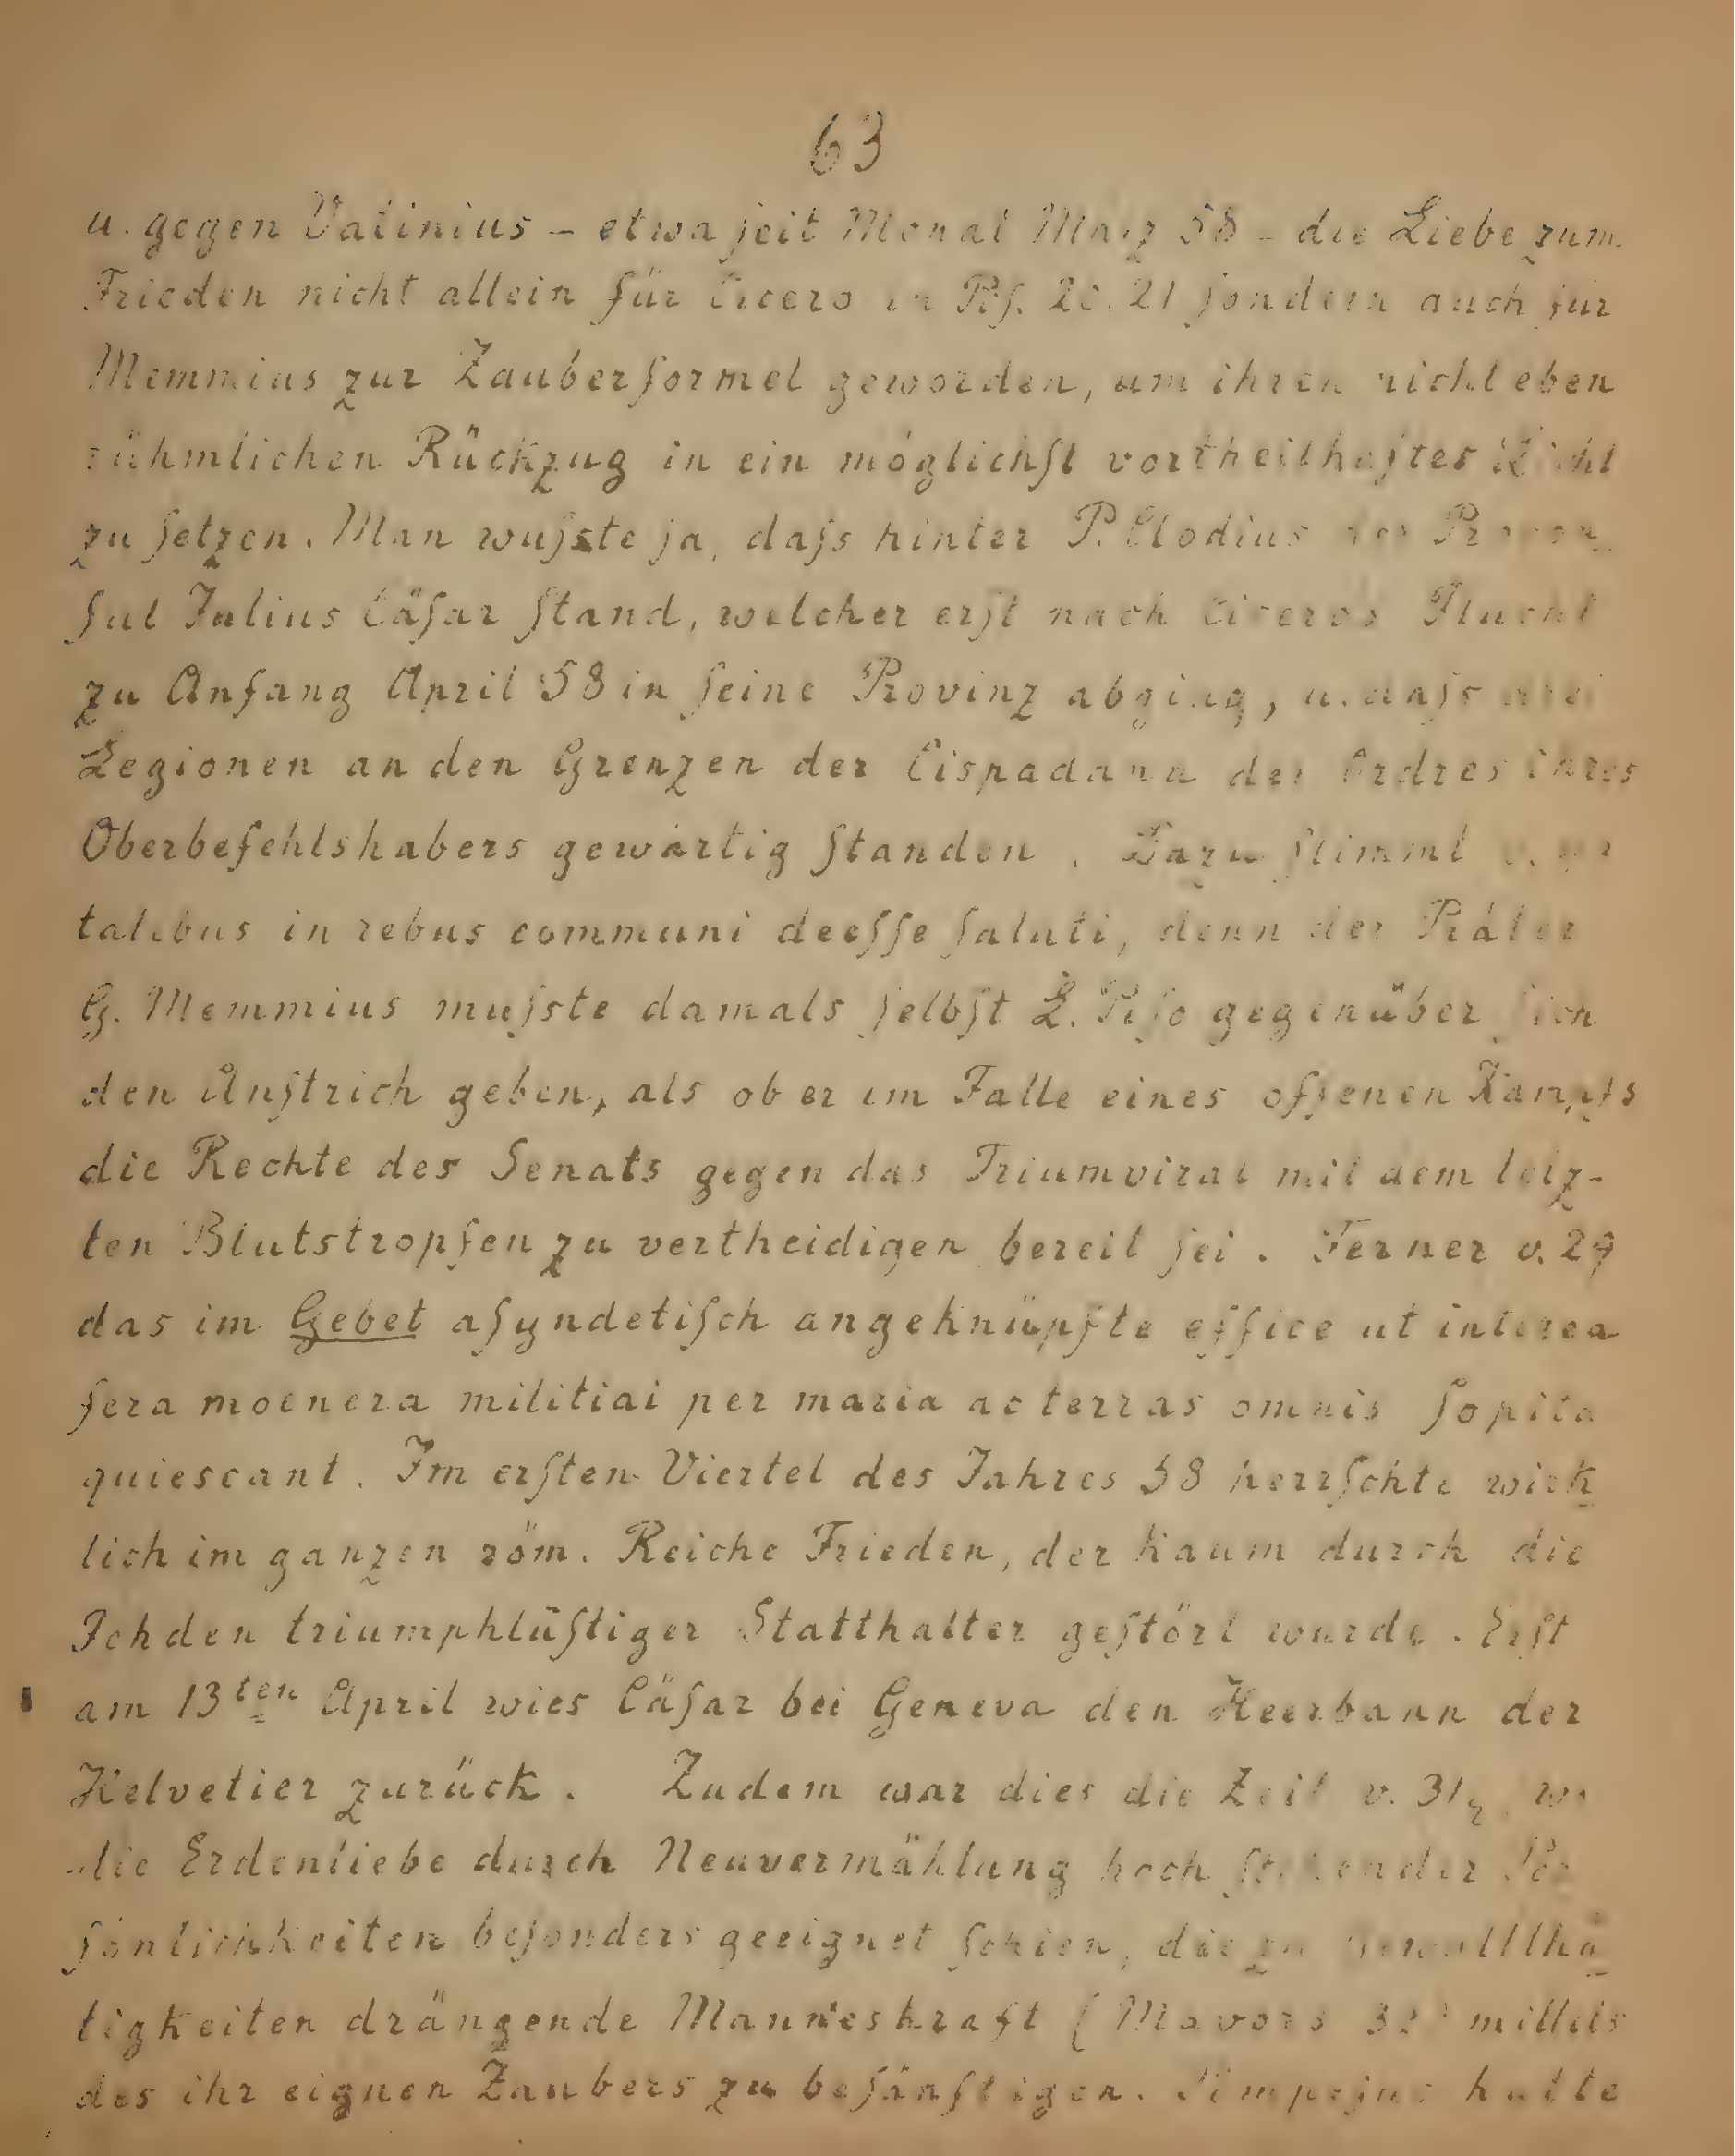 63
u. gegen Vatinius – etwa ſeit Monat März 58 – die Liebe zum
Frieden nicht allein für Cicero in Pſ. 20. 21 ſondern auch für
Memmius zur Zauberformel geworden, um ihren nicht eben
rühmlichen Rückzug in ein möglichſt vortheilhaftes Licht
zu ſetzen. Man wuſste ja, daſs hinter P. Clodius der Procon
ſul Julius Cäſar ſtand, welcher erſt nach Ciceros Flucht
zu Anfang April 58 in ſeine Provinz abging, u. daſs drei
Legionen an den Grenzen der Cispadana der Ordres ihres
Oberbefehlshabers gewärtig ſtanden. Dazu ſtimmt v.
talibus in rebus communi deeſſe ſaluti, denn der Prätor
G. Memmius muſste damals ſelbſt L. Piſo gegenüber ſich
den Anſtrich geben, als ob er im Falle eines offenen Kampfs
die Rechte des Senats gegen das Triumvirat mit dem letz-
ten Blutstropfen zu vertheidigen bereit ſei. Ferner v. 29
das im Gebet aſyndetiſch angeknüpfte effice ut interea
fera moenera militiai per maria ac terras omnis ſopita
quiescant. Im erſten Viertel des Jahres 58 herrſchte wirk
lich im ganzen röm. Reiche Frieden, der kaum durch die
Fehden triumphlüſtiger Statthalter geſtört wurde. Erſt
am 13ten April wies Cäſar bei Geneva den Heerbann der
Helvetier zurück. Zudem war dies die Zeit v. 31, wo
die Erdenliebe durch Neuvermählung hoch ſtehender Per
ſönlichkeiten beſonders geeignet ſchien, die zu Gewaltthä
tigkeiten drängende Manneskraft (Mavors 32) mittels
des ihr eignen Zaubers zu beſänftigen. Pompejus hatte